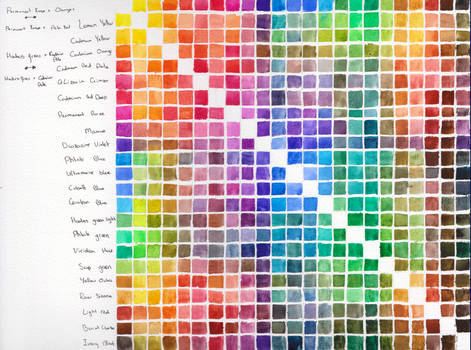 Permanent Rose + Orange
Permanent Rose +
Lemon Yellow
Cadmium Yellow
Hookers green +
Cadmium Orange
Cadmium Red Pale
Hookers green +
Alizarin Crimson
Cadmium Red Deep
Permanent Rose
Mauve
Dioxazine Violet
Phthalo Blue
Ultramarine blue
Cobalt Blue
Cerulean Blue
Hookers green light
Phthalo green
Viridian Hue
Sap green
Yellow Ochre
Raw Sienna
Light red
Burnt Umber
Ivory Black